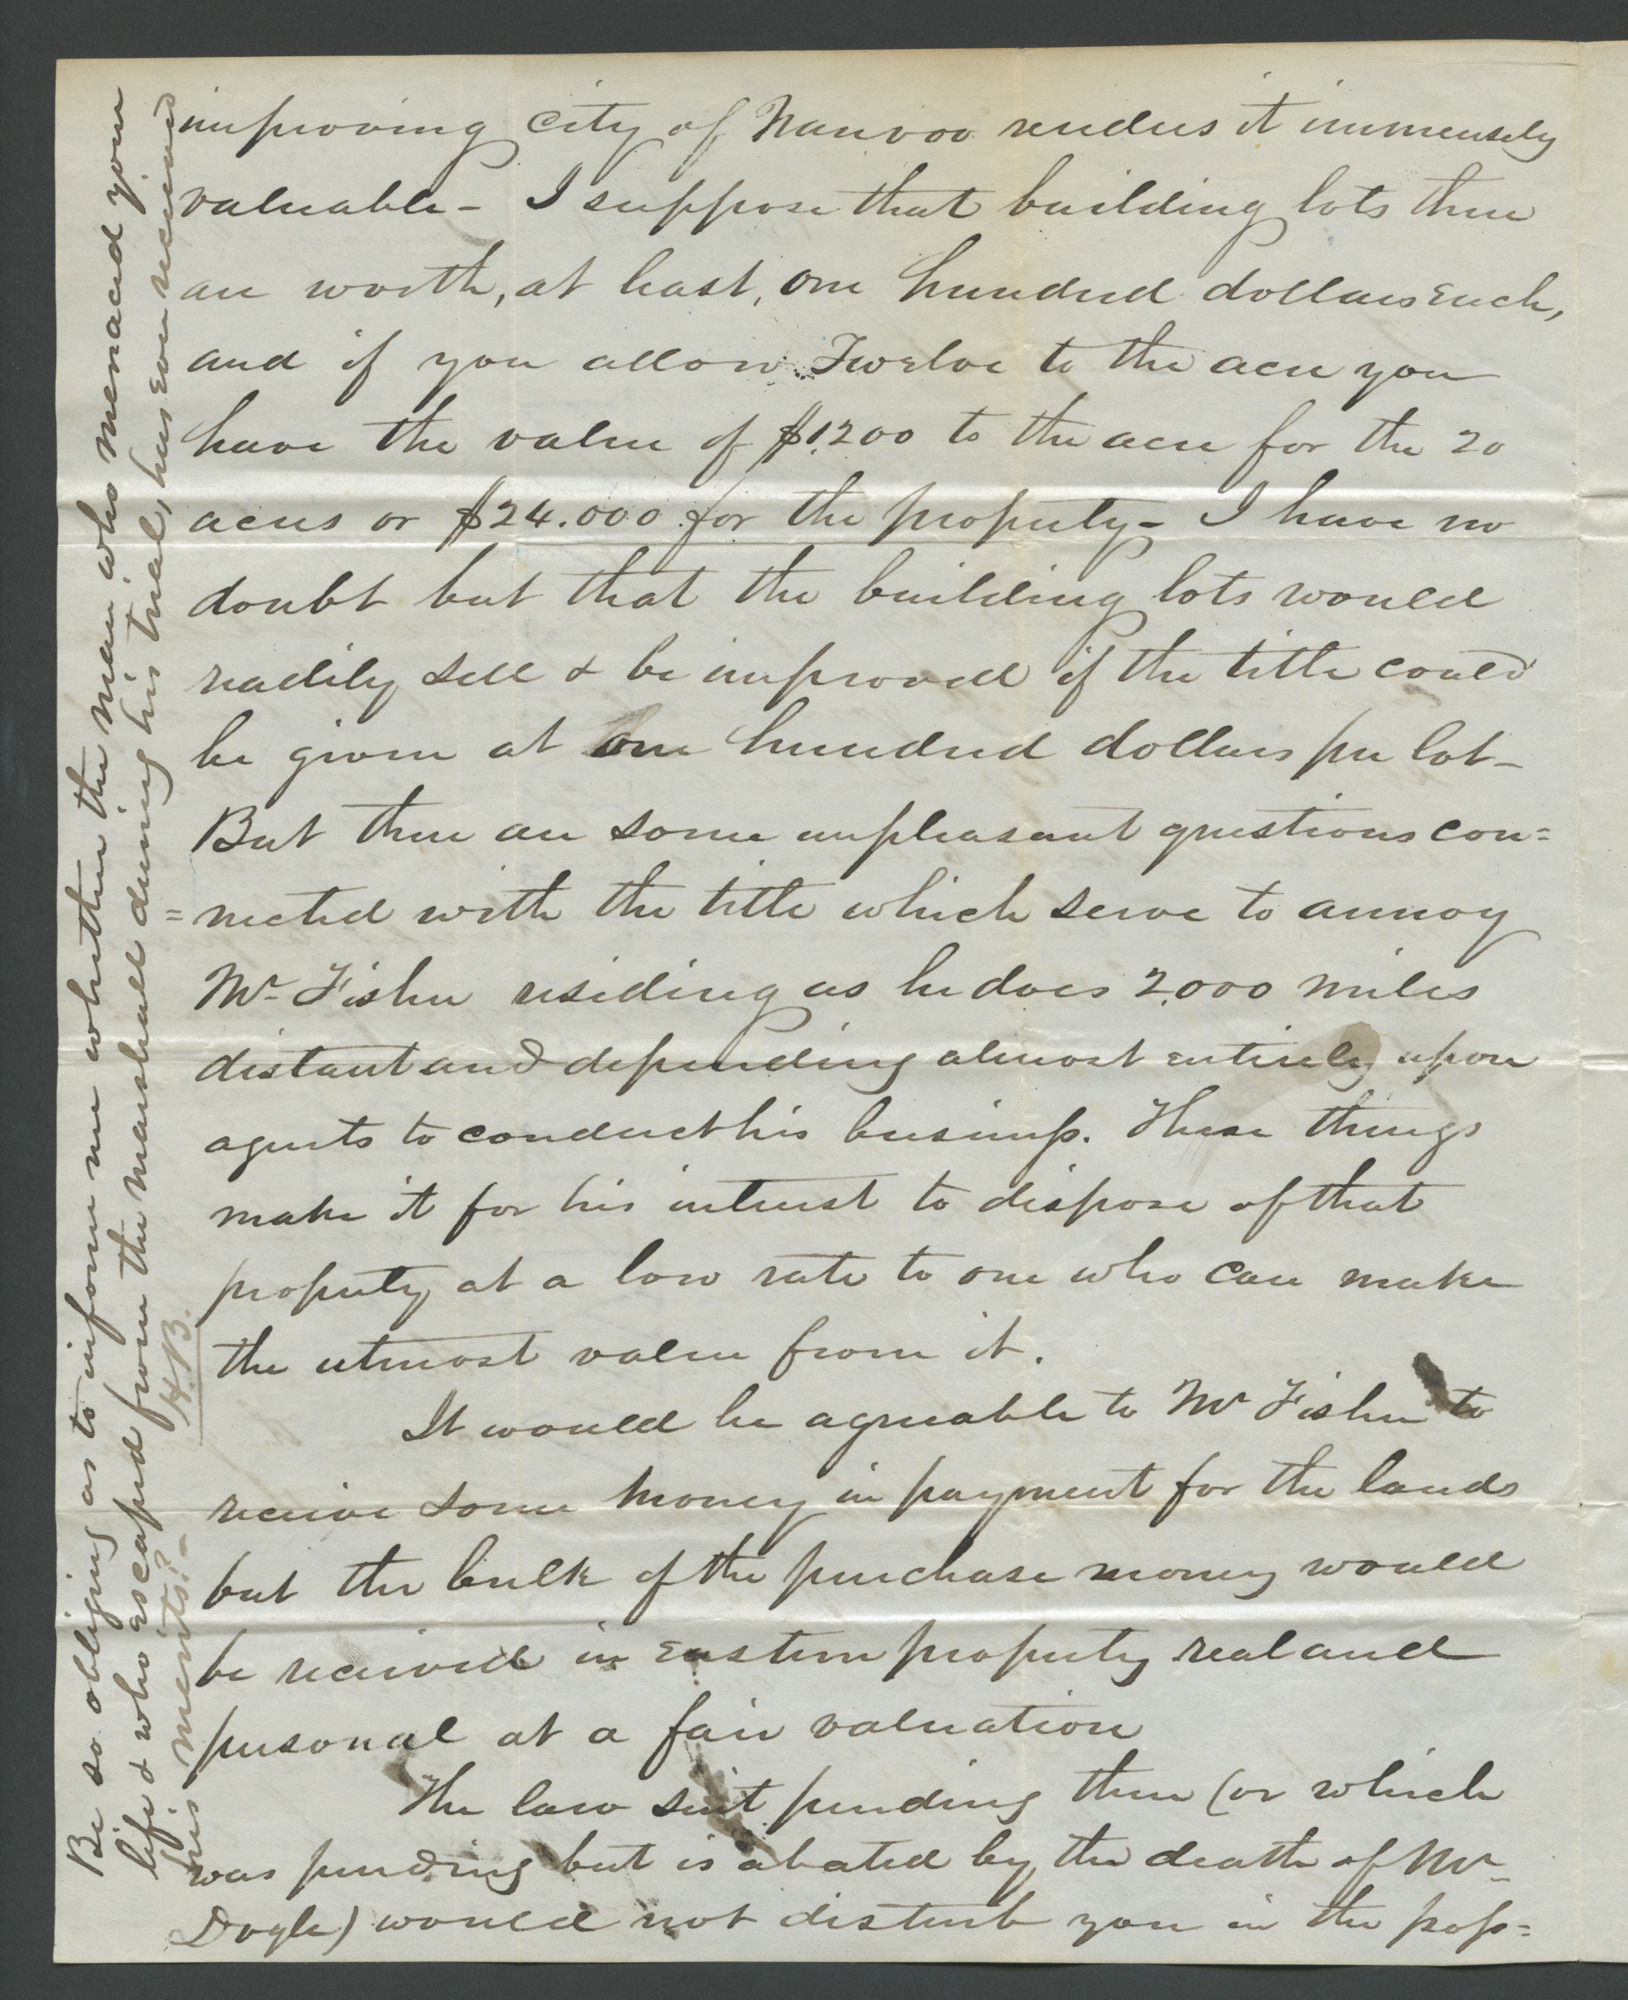 improving city of Nauvoo renders it immensely
valuable- I suppose that building lots there
are worth, at least, one hundred dollars each,
and if you allow Twelve to the acre you
have the value of $1,200 to the acre for the 20
acres or $24.000 for the property- I have no
doubt but that the building lots would
readily sell & be improved if the title could
be given at one hundred dollars per lot-
But there are some unpleasant questions con=
=nected with the title which serve to annoy
Mr Fisher residing as he does 2,000 miles
distant and depending almost entirely upon
agents to conduct his business. These things
make it for his interest to dispose of that
property at a low rate to one who can make
the utmost value from it.
It would be agreeable to Mr Fisher to
receive some money in payment for the lands
but the bulk of the purchase money would
be received in eastern property real and
personal at a fair valuation
The law suit pending there (or which
was pending but is abated by the death of Mr
Dogle) would not disturb you in the pos=
Be so obliging as to inform me whether the man who menaced your
life & who escaped from the marshall during his trial, has ever received
his merits?-
H.B.